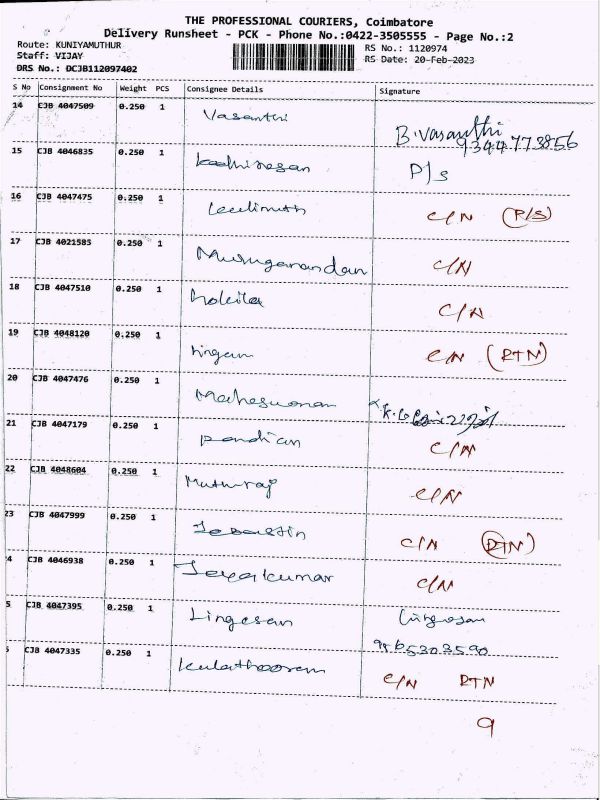 THE PROFESSIONAL COURIERS, Coimbatore
Delivery Runsheet - PCK - Phone No.:0422-3505555 - Page No.:2
Route: KUNIYAMUTHUR
RS No.: 1120974
Staff: VIJAY
RS Date: 20-Feb-2023
DRS No.: DCJB112097402
S No Consignment No Weight PCS Consignee Details Signature
14 CJB 4047509 0.250 1 Vasanthi B.Vasanthi
9344773856
15 CJB 4046835 0.250 1 P/s
16 CJB 4047475 0.250 1 C/N (P/S)
17 CJB 4021583 0.250 1 Muruganandan C/N
18 CJB 4047510 0.250 1 Kokila C/N
19 CJB 4048120 0.250 1 Lingam C/N (RTN)
20 CJB 4047476 0.250 1 Maheswaran
21 CJB 4047179 0.250 1 Pandian C/N
22 CJB 4048604 0.250 1 Muthuraj C/N
23 CJB 4047999 0.250 1 Jebastin C/N (RTN)
4 CJB 4046938 0.250 1 Jeyakumar C/N
5 CJB 4047395 0.250 1 Lingesan Lingesan
9865303590
CJB 4047335 0.250 1 C/N RTN
9